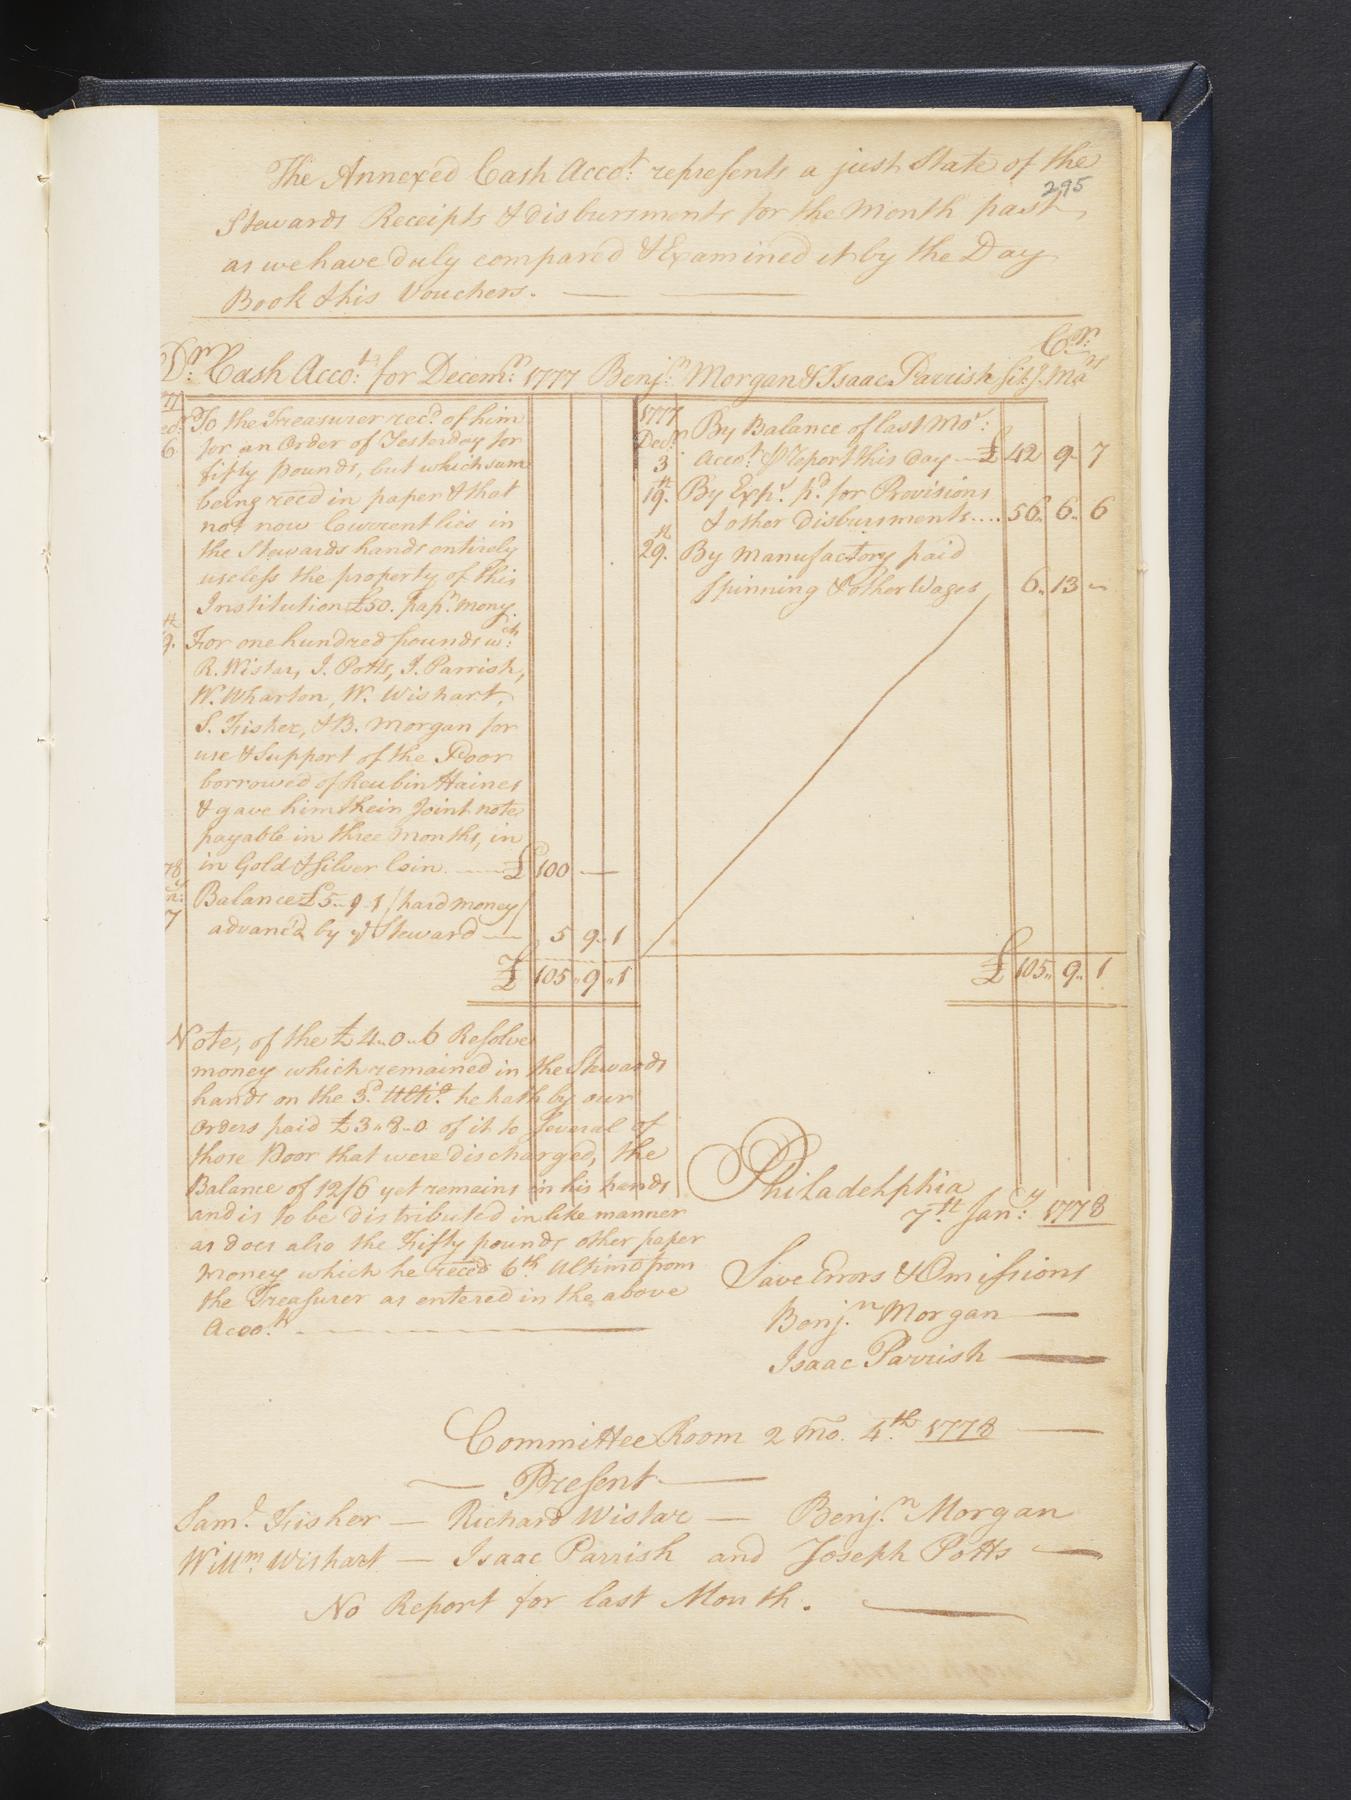 The Annexed Cash Acco.t represents a just State of the
295
Stewards Receipts & disbursments for the Month past,
as we have duly compared & Examined it by the Day
Book & his Vouchers.
C.r
D.r Cash Acco.t for Decem.r 1777 Benj.n Morgan & Isaac Parrish
77
6 To the Treasurer rec.d of him
for an Order of Yesterday for
fifty Pounds, but which sum
being reced in paper & that
not now Current lies in
the Stewards hands entirely
useless the property of this
Institution £50. pap.r mony.
9. For one hundred pounds w.ch
R. Wistar, J. Potts, I. Parrish,
W. Wharton, W. Wishart,
S. Fisher, & B. Morgan for
use & Support of the Poor
borrowed of Reubin Haines
& gave him their Joint note
payable in three Months, in
in Gold & Silver Coin £ 100 —
78
7 Balance £5..9..1 / hard money /
advanc'd by y.e Steward 5 9 1
£ 105 .. 9 .. 1
1777 Decr 3 By Balance of last Mo.s
Acco.t & Report this day £ 42 9 7
19.th By Exp.s p.d for Provisions
& other disbursments.... 56.. 6.. 6
29.th By Manufactory paid
Spinning & other Wages 6.. 13 ~
£ 105.. 9.. 1
Note, of the £4..0..6 Resolve
money which remained in the Stewards
hands on the 3.d Ulti.o he hath by our
Orders paid £3..8..0 of it to several of
those Poor that were discharged, the
Balance of 12/6 yet remains in his hands
and is to be distributed in like manner
as does also the Fifty pounds other paper
Money which he reced 6th Ultimo from
the Treasurer as entered in the above
Acco.t
Philadelphia
7.th Jan.y 1778
Save Errors & Omissions
Benj.n Morgan
Isaac Parrish
Committee Room 2 mo. 4.th 1778
Present
Sam.l Fisher — Richard Wistar — Benj.n Morgan
Will.m Wishart — Isaac Parrish and Joseph Potts
No Report for last Month.